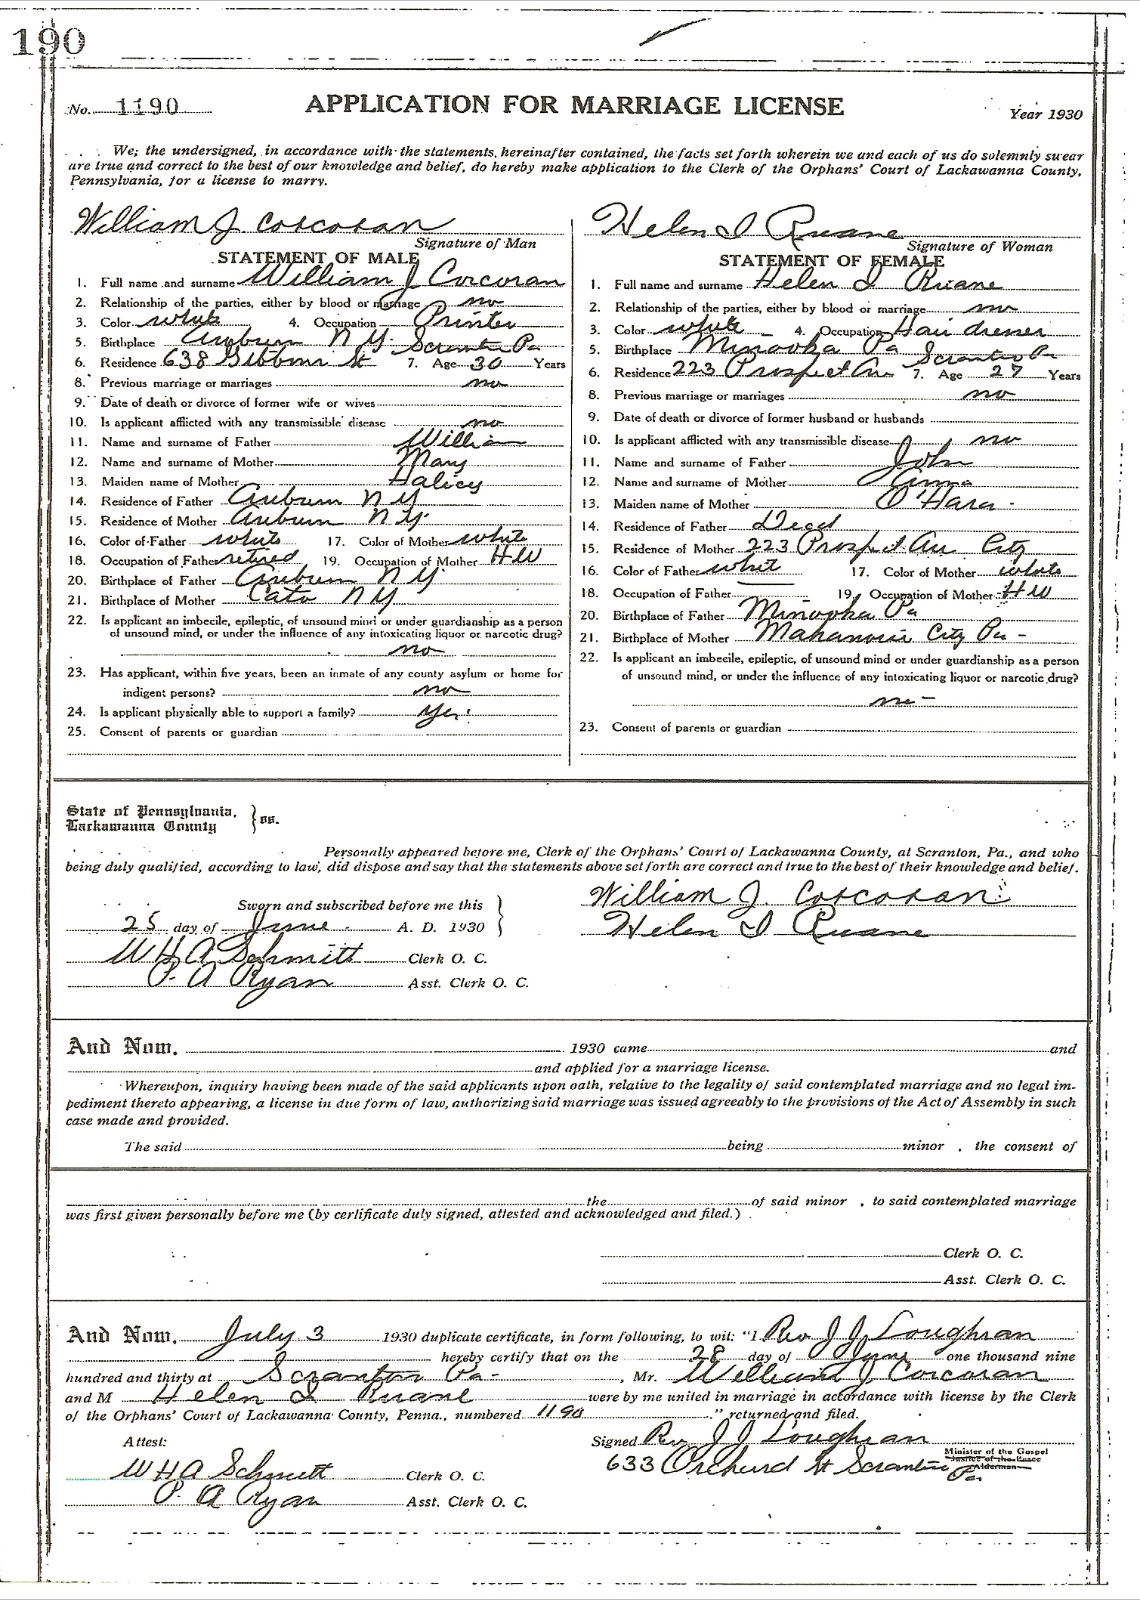 190
No. 1190 APPLICATION FOR MARRIAGE LICENSE Year 1930
We, the undersigned, in accordance with the statements, hereinafter contained, the facts set forth wherein we and each of us do solemnly swear
are true and correct to the best of our knowledge and belief, do hereby make application to the Clerk of the Orphans' Court of Lackawanna County,
Pennsylvania, for a license to marry.
William J Corcoran
Signature of Man
STATEMENT OF MALE
1. Full name and surname William J Corcoran
2. Relationship of the parties, either by blood or marriage no
3. Color white 4. Occupation Printer
5. Birthplace Auburn N Y Scranton Pa
6. Residence 638 Gibbons St 7. Age 30 Years
8. Previous marriage or marriages no
9. Date of death or divorce of former wife or wives
10. Is applicant afflicted with any transmissible disease no
11. Name and surname of Father William
12. Name and surname of Mother Mary
13. Maiden name of Mother
14. Residence of Father Auburn N Y
15. Residence of Mother Auburn N Y.
16. Color of Father white 17. Color of Mother white
18. Occupation of Father retired 19. Occupation of Mother H W
20. Birthplace of Father Auburn N Y.
21. Birthplace of Mother Cato N Y
22. Is applicant an imbecile, epileptic, of unsound mind or under guardianship as a person
of unsound mind, or under the influence of any intoxicating liquor or narcotic drug?
no
23. Has applicant, within five years, been an inmate of any county asylum or home for
indigent persons? no
24. Is applicant physically able to support a family? yes.
25. Consent of parents or guardian
Helen I Ruane
Signature of Woman
STATEMENT OF FEMALE
1. Full name and surname Helen I Ruane
2. Relationship of the parties, either by blood or marriage no
3. Color white 4. Occupation Hair dresser
5. Birthplace Minooka Pa Scranton Pa
6. Residence 223 Prospect Av 7. Age 27 Years
8. Previous marriage or marriages no
9. Date of death or divorce of former husband or husbands
10. Is applicant afflicted with any transmissible disease no
11. Name and surname of Father John
12. Name and surname of Mother Anna
13. Maiden name of Mother O'Hara -
14. Residence of Father Dead
15. Residence of Mother 223 Prospect Av City
16. Color of Father white 17. Color of Mother white
18. Occupation of Father 19. Occupation of Mother H W
20. Birthplace of Father Minooka Pa
21. Birthplace of Mother City Pa -
22. Is applicant an imbecile, epileptic, of unsound mind or under guardianship as a person
of unsound mind, or under the influence of any intoxicating liquor or narcotic drug?
no -
23. Consent of parents or guardian
State of Pennsylvania,
Lackawanna County } ss.
Personally appeared before me, Clerk of the Orphans' Court of Lackawanna County, at Scranton, Pa., and who
being duly qualified, according to law, did dispose and say that the statements above set forth are correct and true to the best of their knowledge and belief.
Sworn and subscribed before me this William J. Corcoran
25 day of June A. D. 1930 Helen I Ruane
W H A Schmitt Clerk O. C.
P. A Ryan Asst. Clerk O. C.
And Now, 1930 came and
and applied for a marriage license.
Whereupon, inquiry having been made of the said applicants upon oath, relative to the legality of said contemplated marriage and no legal im-
pediment thereto appearing, a license in due form of law, authorizing said marriage was issued agreeably to the provisions of the Act of Assembly in such
case made and provided.
The said being minor , the consent of
the of said minor , to said contemplated marriage
was first given personally before me (by certificate duly signed, attested and acknowledged and filed.)
Clerk O. C.
Asst. Clerk O. C.
And Now, July 3 1930 duplicate certificate, in form following, to wit: "I, Rev J J Loughran
hereby certify that on the 28 day of June one thousand nine
hundred and thirty at Scranton Pa- , Mr. William J Corcoran
and M Helen I Ruane were by me united in marriage in accordance with license by the Clerk
of the Orphans' Court of Lackawanna County, Penna., numbered 1190 " returned and filed.
Attest: Signed Rev J J Loughran
W H A Schmitt Clerk O. C. 633 Orchard St Scranton Pa
Minister of the Gospel
Justice of the Peace
Alderman
P. A Ryan Asst. Clerk O. C.